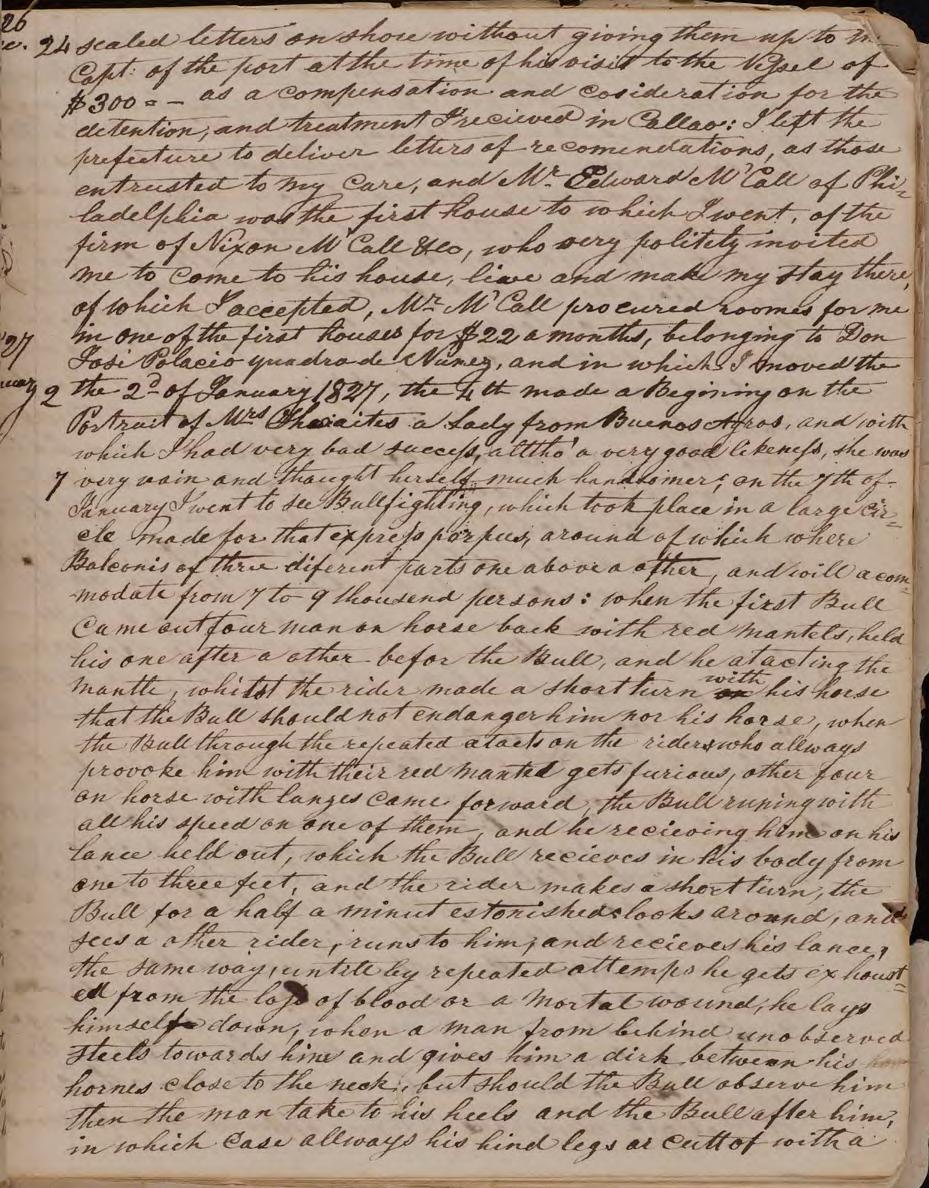 24 sealed letters on shore without giving them up to the
Capt: of the port at the time of his visit to the Vessel of
$300=- as a compensation and cosideration for the
detention, and treatment I recieved in Callao: I left the
prefecture to deliver letters of recomendations, as those
entrusted to my Care, and Mr. Edward M'Call of Phi=
ladelphia was the first house to which I went, of the
firm of Nixon M'Call &Co, who very politely invited
me to come to his house, live and make my stay there,
of which I accepted, Mr. M'Call procured roomes for me
in one of the first houses for $22 a months, belonging to Don
José Polacio quadra de Nunez, and in which I moved the
2 the 2d of January 1827, the 4th made a Begining on the
Portrait of Mrs Thwaites a Lady from Buenos Ayros, and with
which I had very bad success, alltho' a very good likeness, she was
7 very vain and thought herself much handsomer; on the 7th of
January I went to see Bullfighting, which took place in a large cir=
cle made for that express porpus, around of which where
Balconis of three diferent parts one above a other, and will acom=
modate from 7 to 9 thousend persons: when the first Bull
came out four man on horse back with red mantels, held
his one after a other befor the Bull, and he atacting the
mantle, whilst the rider made a short turn with his horse
that the Bull should not endanger him nor his horse, when
the Bull through the repeated atacts on the riders who allways
provoke him with their red mantel gets furious, other four
on horse with lanzes came forward, the Bull runing with
all his speed on one of them, and he recieving him on his
lance held out, which the Bull recieves in his body from
one to three feet, and the rider makes a short turn, the
Bull for a half a minut estonished looks around, and
sees a other rider, runs to him, and recieves his lance,
the same way, untill by repeated attemps he gets exhoust=
ed from the loss of blood or a mortal wound, he lays
himself down, when a man from behind unobserved
steels towards him and gives him a dirk between his
hornes close to the neck, but should the Bull observe him
then the man take to his heels and the Bull after him,
in which case allways his hind legs ar cutt of with a